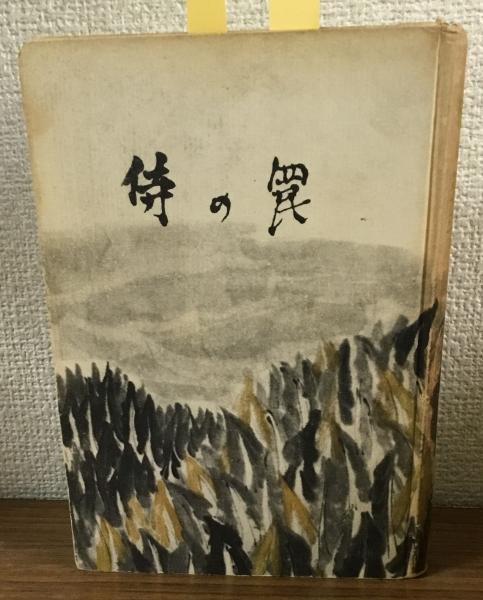 侍の罠